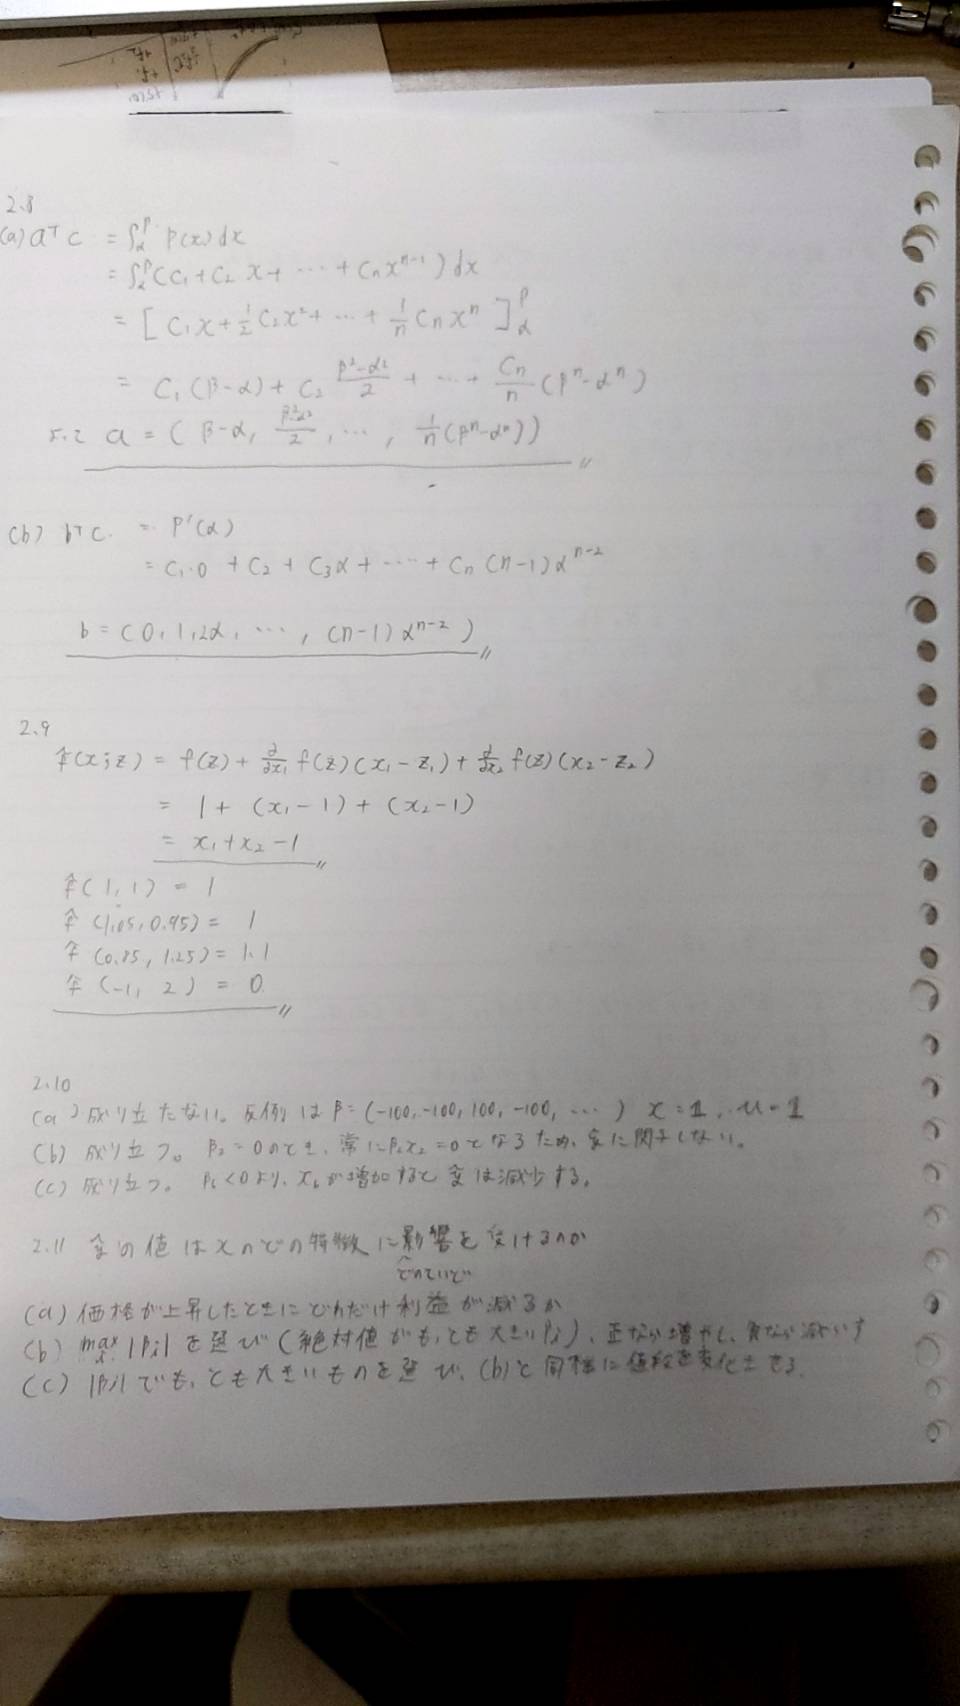 2.8
(a) aᵀc = ∫_α^β P(x)dx
= ∫_α^β (C₁+C₂x+ ⋯ + Cₙxⁿ⁻¹)dx
= [C₁x+½C₂x²+ ⋯ + 1/n Cₙxⁿ]_α^β
= C₁(β-α)+C₂ (β²-α²)/2 + ⋯ + Cₙ/n (βⁿ-αⁿ)
よって a = (β-α, (β²-α²)/2, ⋯, 1/n(βⁿ-αⁿ))
(b) bᵀc = P'(α)
= C₁·0 + C₂ + C₃α + ⋯ + Cₙ(n-1)αⁿ⁻²
b = (0, 1, 2α, ⋯, (n-1)αⁿ⁻²)
2.9
f̂(x;z) = f(z) + ∂/∂x₁ f(z)(x₁-z₁) + ∂/∂x₂ f(z)(x₂-z₂)
= 1 + (x₁-1) + (x₂-1)
= x₁+x₂-1
f̂(1,1) = 1
f̂(1.05, 0.95) = 1
f̂(0.85, 1.25) = 1.1
f̂(-1, 2) = 0
2.10
(a) 成り立たない。反例は β=(-100, -100, 100, -100, ⋯) x=1, u=1
(b) 成り立つ。 β₂=0のとき、常にβ₂x₂=0となるため、ŷに関与しない。
(c) 成り立つ。 β₆<0より、x₆が増加するとŷは減少する。
2.11 ŷの値はxのどの特徴に影響を受けるのか
どのていど
(a) 価格が上昇したときにどれだけ利益が減るか
(b) max |βᵢ| を選び(絶対値がもっとも大きいβᵢ)、正なら増やし、負なら減らす
(c) |βᵢ|でもっとも大きいものを選び、(b)と同様に値段を変化させる。